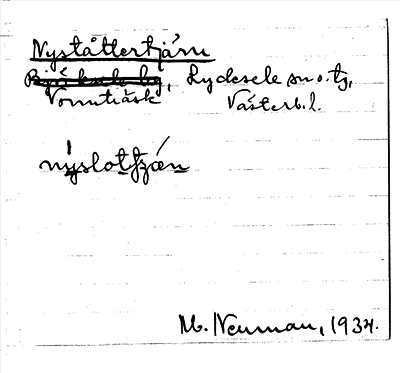 Nystáttertjärn
Lycksele sn o. tg,
Vormträsk Västerb. l.
nýslotʃǽn
M. Neuman, 1934.